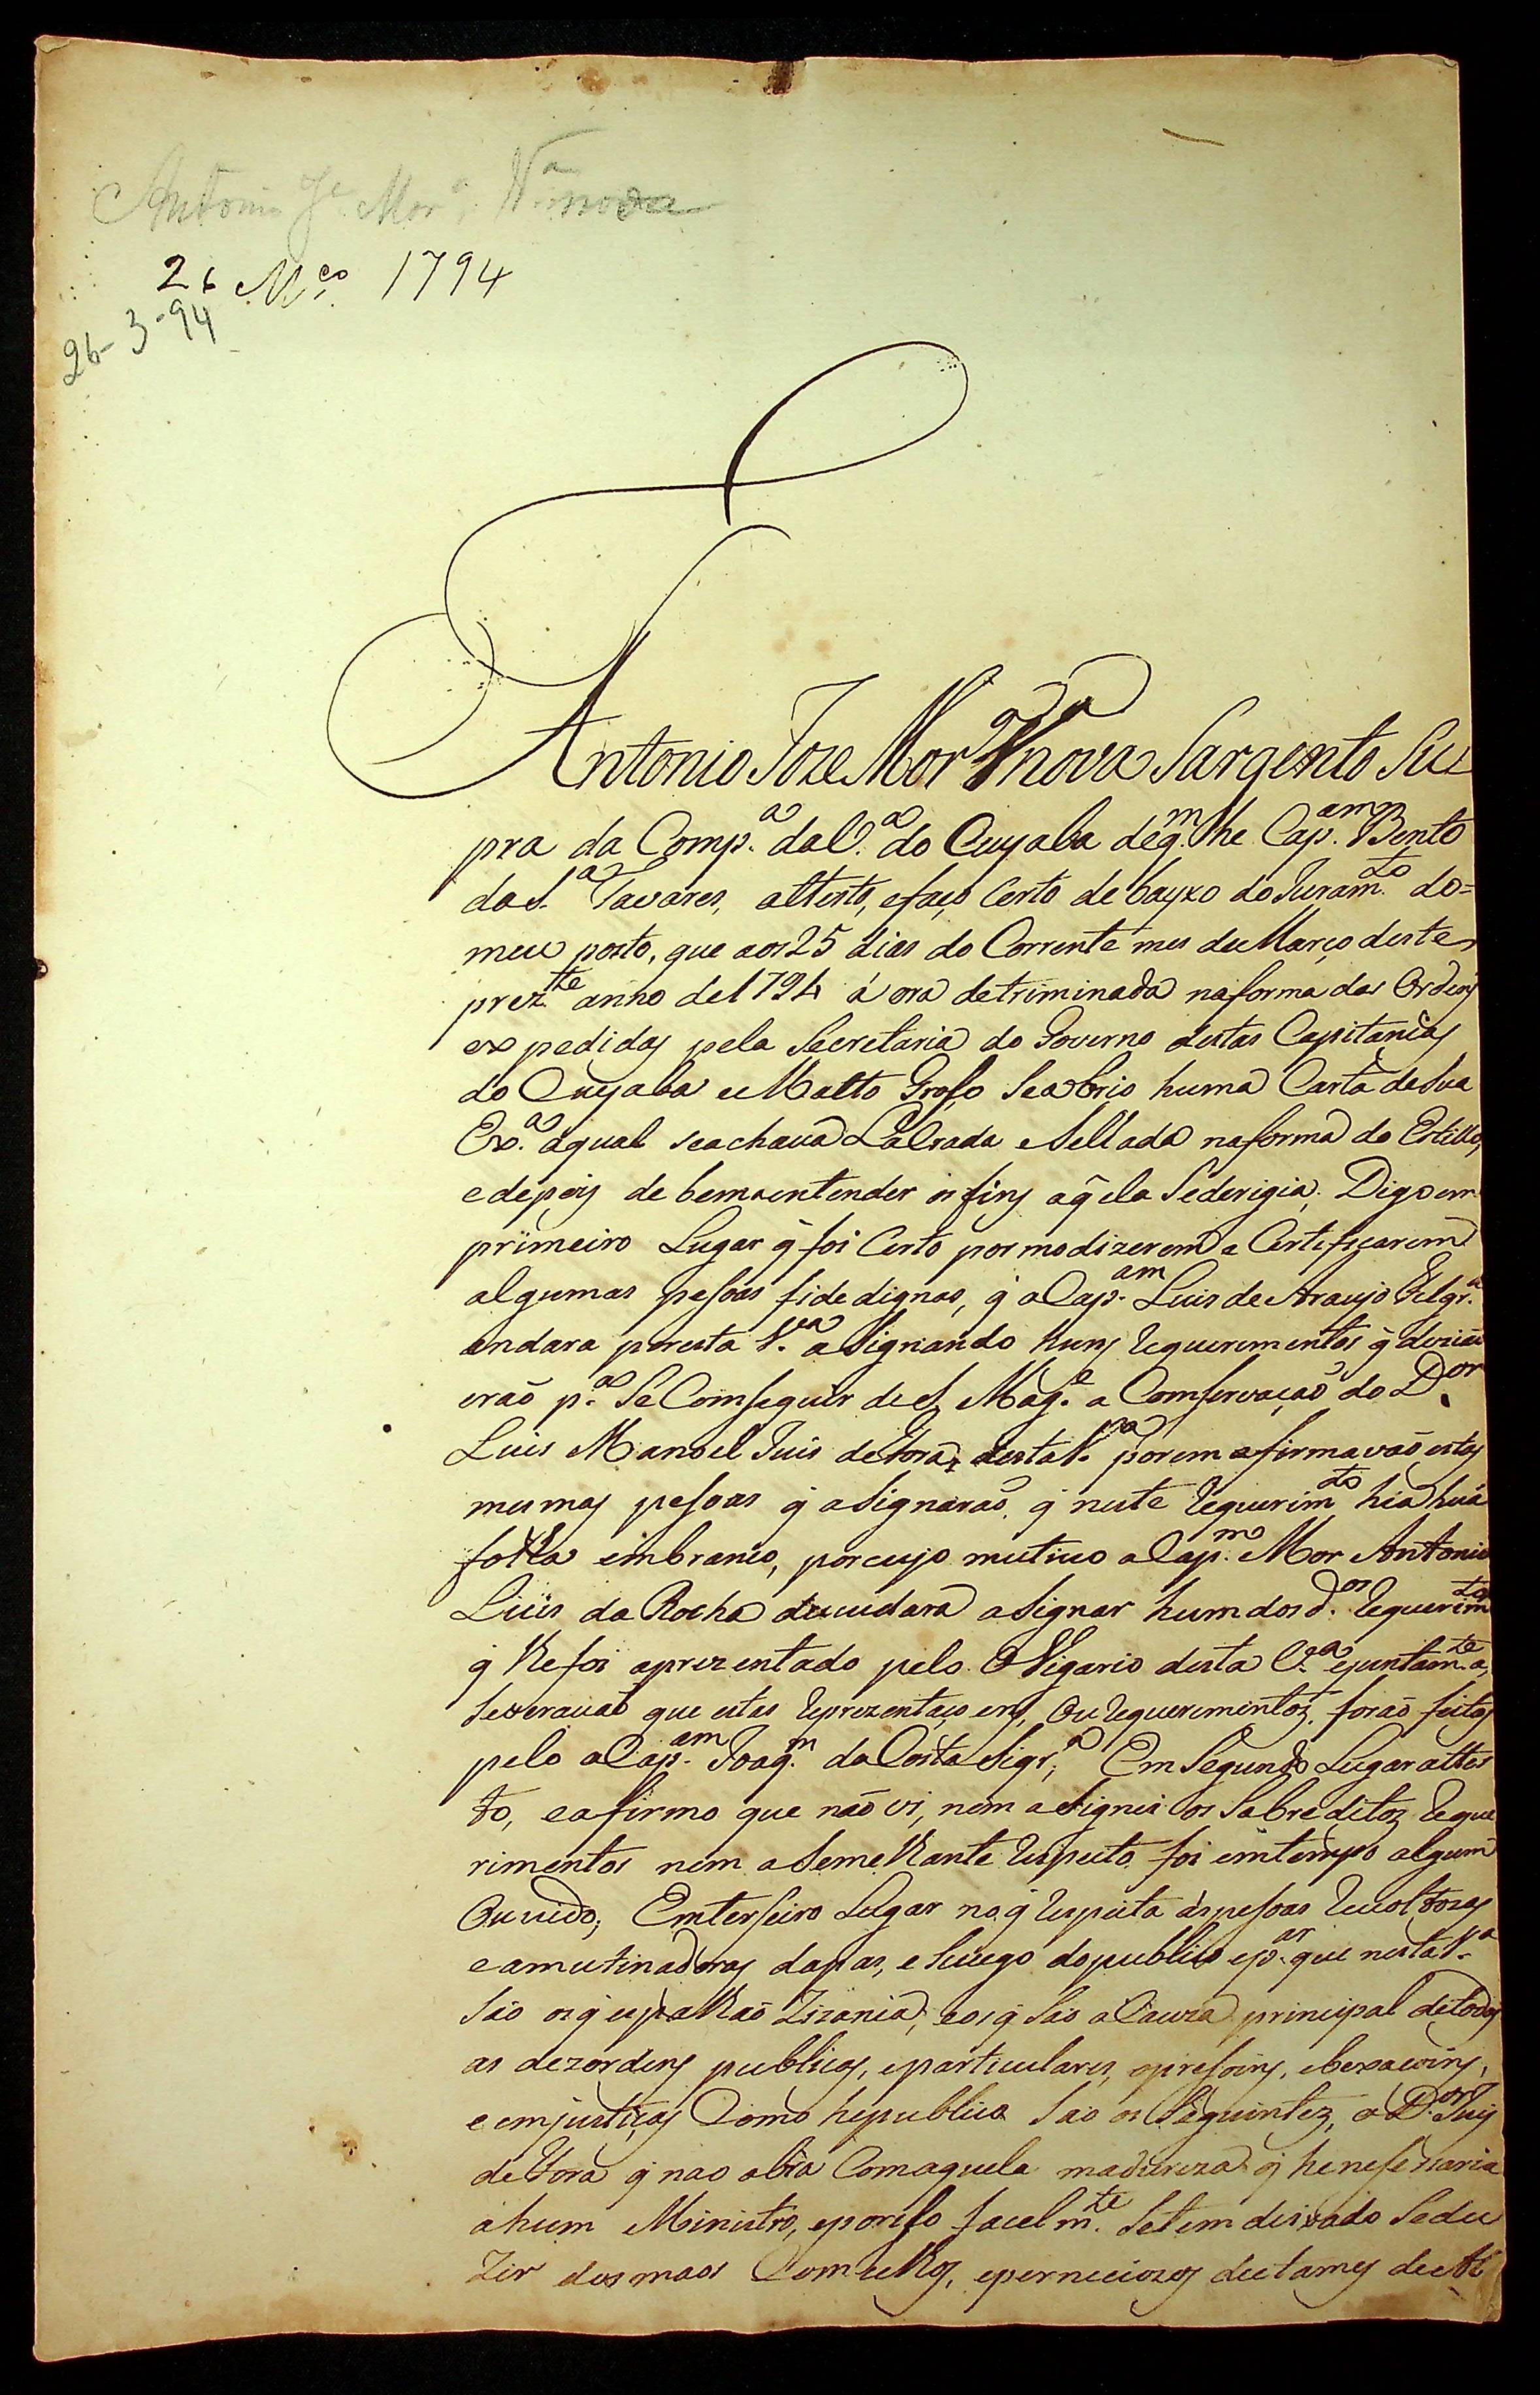 Antonio Je. Mora. Va. nova
26 Mço. 1794
26-3-94
Antonio Joze Mora Va nova Sargento Su
pra da Compa. da Va. do Cuyaba de qm. he Capam. Bento
da Sa. Tavares, attesto, e faço Certo debayxo do Juramto. do=
meu posto, que aos 25 dias do Corrente mes de Março deste
prezte anno de 1794 á ora detriminada na forma das Ordens
expedidas pela Secretaria do Governo destas Capitanias
do Cuyaba e Matto Groso Se abrio huma Carta de Sua
Exa. a qual se achava Lacrada e Sellada na forma do Estillo,
e depois de bem entender os fins a q̃ ela Se derigia; Digo em
primeiro Lugar q̃ foi Certo por mo dizerem e Certeficarem
algumas pesoas fidedignas, q̃ o Capam. Luis de Araujo Filgra.
andara por esta Va. asignando huns Requerimentos q̃ dizião
erão pa. Se Comseguir de S. Mage. a Comservação do Dor.
Luis Manoel Juis de Fora desta Va. porem afirmavão estas
mesmas pesoas q̃ asignarão, q̃ neste Requerimto hia huã
folha em branco, por cujo mutivo o Capmo. Mor Antonio
Luis da Rocha duvidara asignar hum dos dos. Requerimtos
q̃ lhe foi aprezentado pelo Vigario desta Va. e juntamte. a
severavão que estas Reprezentaçoens, Ou Requerimentos, forão feitos
pelo o Capam. Joaqm. da Costa Siqra; Em Segundo Lugar attes
to, e afirmo que não vi, nem asignei os Sobreditos Reque
rimentos nem a Semelhante Respeito foi em tempo algum
Ouvido; Em terseiro Lugar no q̃ Respeita ás pesoas Revoltozas
e amutinadoras da pas, e Sucego do publico e par. que nesta Va.
São os q̃ espalhão Zizania, e os q̃ São a Cauza principal de todas
as dezordens publicas, e particulares, opresoins, e bexacoins,
e emjustiças Como he publico São os Seguintes, o Dor. Juis
de Fora q̃ nao obra Com aquela madureza q̃ he nesesaria
a hum Ministro, e por iso facelmte. Se tem dixado Sedu
Zir dos maos Comselhos, e perneciozos dictames de Al